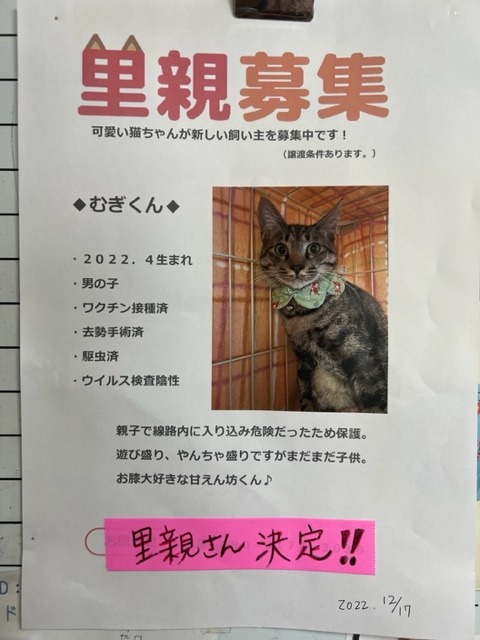 里親募集
可愛い猫ちゃんが新しい飼い主を募集中です！
（譲渡条件あります。）
◆むぎくん◆
・２０２２．４生まれ
・男の子
・ワクチン接種済
・去勢手術済
・駆虫済
・ウイルス検査陰性
親子で線路内に入り込み危険だったため保護。
遊び盛り、やんちゃ盛りですがまだまだ子供。
お膝大好きな甘えん坊くん♪
里親さん 決定!!
2022.12/17
D:
ド